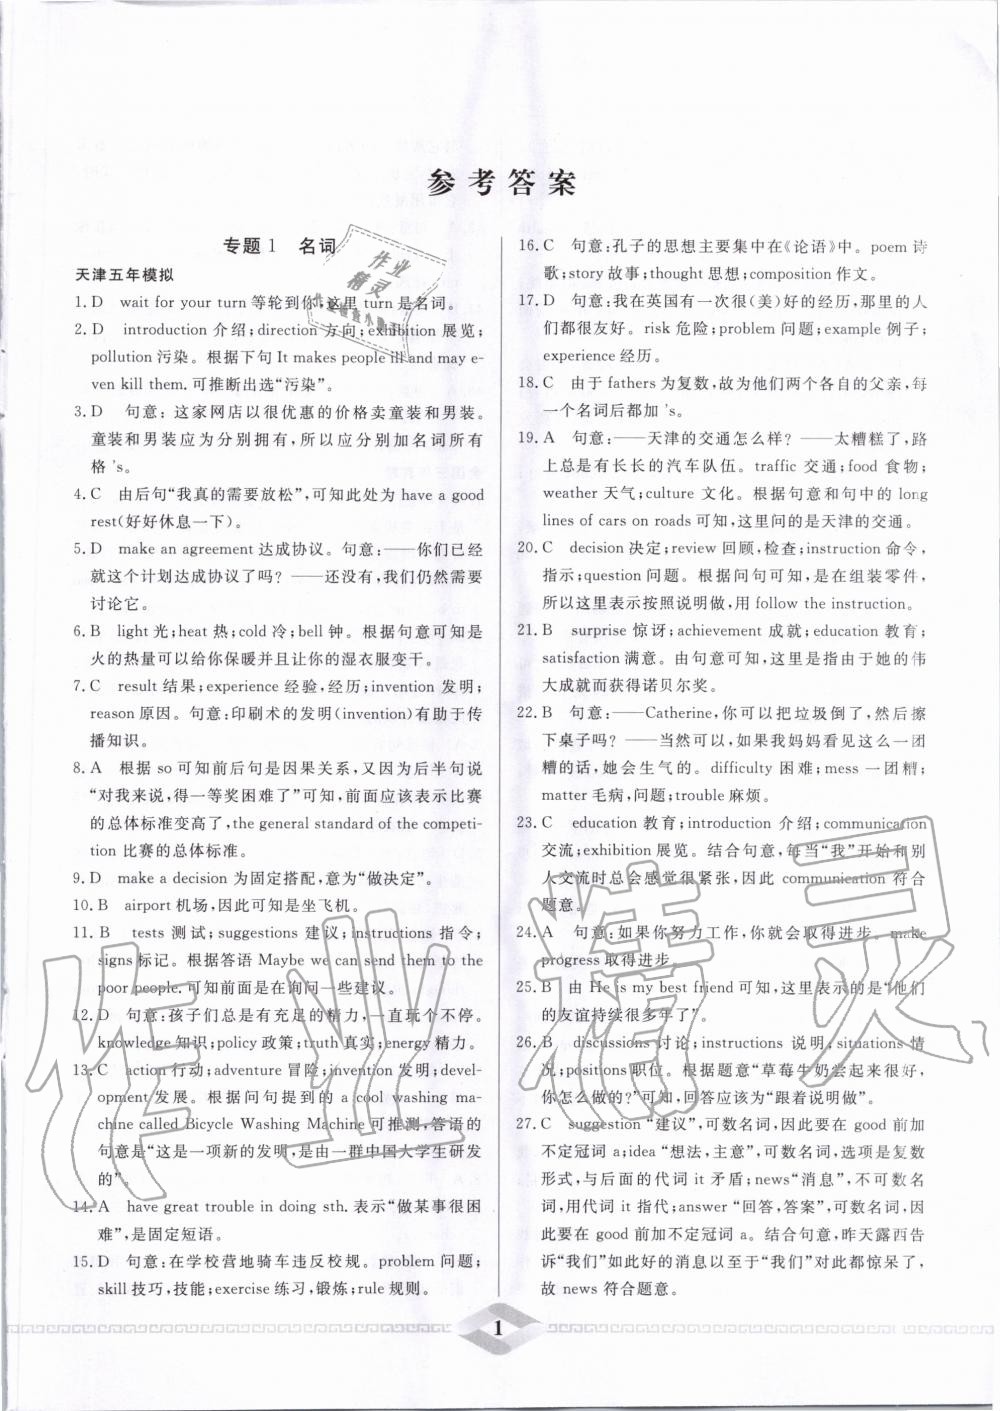 参考答案
专题1 名词
天津五年模拟
1. D wait for your turn 等轮到你,这里 turn 是名词。
2. D introduction 介绍;direction 方向;exhibition 展览;
pollution 污染。根据下句 It makes people ill and may e-
ven kill them. 可推断出选“污染”。
3. D 句意:这家网店以很优惠的价格卖童装和男装。
童装和男装应为分别拥有,所以应分别加名词所有
格 's。
4. C 由后句“我真的需要放松”,可知此处为 have a good
rest(好好休息一下)。
5. D make an agreement 达成协议。句意:——你们已经
就这个计划达成协议了吗?——还没有,我们仍然需要
讨论它。
6. B light 光;heat 热;cold 冷;bell 钟。根据句意可知是
火的热量可以给你保暖并且让你的湿衣服变干。
7. C result 结果;experience 经验,经历;invention 发明;
reason 原因。句意:印刷术的发明(invention)有助于传
播知识。
8. A 根据 so 可知前后句是因果关系,又因为后半句说
“对我来说,得一等奖困难了”可知,前面应该表示比赛
的总体标准变高了,the general standard of the competi-
tion 比赛的总体标准。
9. D make a decision 为固定搭配,意为“做决定”。
10. B airport 机场,因此可知是坐飞机。
11. B tests 测试;suggestions 建议;instructions 指令;
signs 标记。根据答语 Maybe we can send them to the
poor people. 可知前面是在询问一些建议。
12. D 句意:孩子们总是有充足的精力,一直玩个不停。
knowledge 知识;policy 政策;truth 真实;energy 精力。
13. C action 行动;adventure 冒险;invention 发明;devel-
opment 发展。根据问句提到的 a cool washing ma-
chine called Bicycle Washing Machine 可推测,答语的
句意是“这是一项新的发明,是由一群中国大学生研发
的”。
14. A have great trouble in doing sth. 表示“做某事很困
难”,是固定短语。
15. D 句意:在学校营地骑车违反校规。problem 问题;
skill 技巧,技能;exercise 练习,锻炼;rule 规则。
16. C 句意:孔子的思想主要集中在《论语》中。poem 诗
歌;story 故事;thought 思想;composition 作文。
17. D 句意:我在英国有一次很(美)好的经历,那里的人
们都很友好。risk 危险;problem 问题;example 例子;
experience 经历。
18. C 由于 fathers 为复数,故为他们两个各自的父亲,每
一个名词后都加 's。
19. A 句意:——天津的交通怎么样?——太糟糕了,路
上总是有长长的汽车队伍。traffic 交通;food 食物;
weather 天气;culture 文化。根据句意和句中的 long
lines of cars on roads 可知,这里问的是天津的交通。
20. C decision 决定;review 回顾,检查;instruction 命令,
指示;question 问题。根据问句可知,是在组装零件,
所以这里表示按照说明做,用 follow the instruction。
21. B surprise 惊讶;achievement 成就;education 教育;
satisfaction 满意。由句意可知,这里是指由于她的伟
大成就而获得诺贝尔奖。
22. B 句意:——Catherine,你可以把垃圾倒了,然后擦
下桌子吗?——当然可以,如果我妈妈看见这么一团
糟的话,她会生气的。difficulty 困难;mess 一团糟;
matter 毛病,问题;trouble 麻烦。
23. C education 教育;introduction 介绍;communication
交流;exhibition 展览。结合句意,每当“我”开始和别
人交流时总会感觉很紧张,因此 communication 符合
题意。
24. A 句意:如果你努力工作,你就会取得进步。make
progress 取得进步。
25. B 由 He is my best friend 可知,这里表示的是“他们
的友谊持续很多年了”。
26. B discussions 讨论;instructions 说明;situations 情
况;positions 职位。根据题意“草莓牛奶尝起来很好,
你怎么做的?”可知,回答应该为“跟着说明做”。
27. C suggestion “建议”,可数名词,因此要在 good 前加
不定冠词 a;idea “想法,主意”,可数名词,选项是复数
形式,与后面的代词 it 矛盾;news“消息”,不可数名
词,用代词 it 指代;answer “回答,答案”,可数名词,因
此要在 good 前加不定冠词 a。结合句意,昨天露西告
诉“我们”如此好的消息以至于“我们”对此都惊呆了,
故 news 符合题意。
1
作业精灵